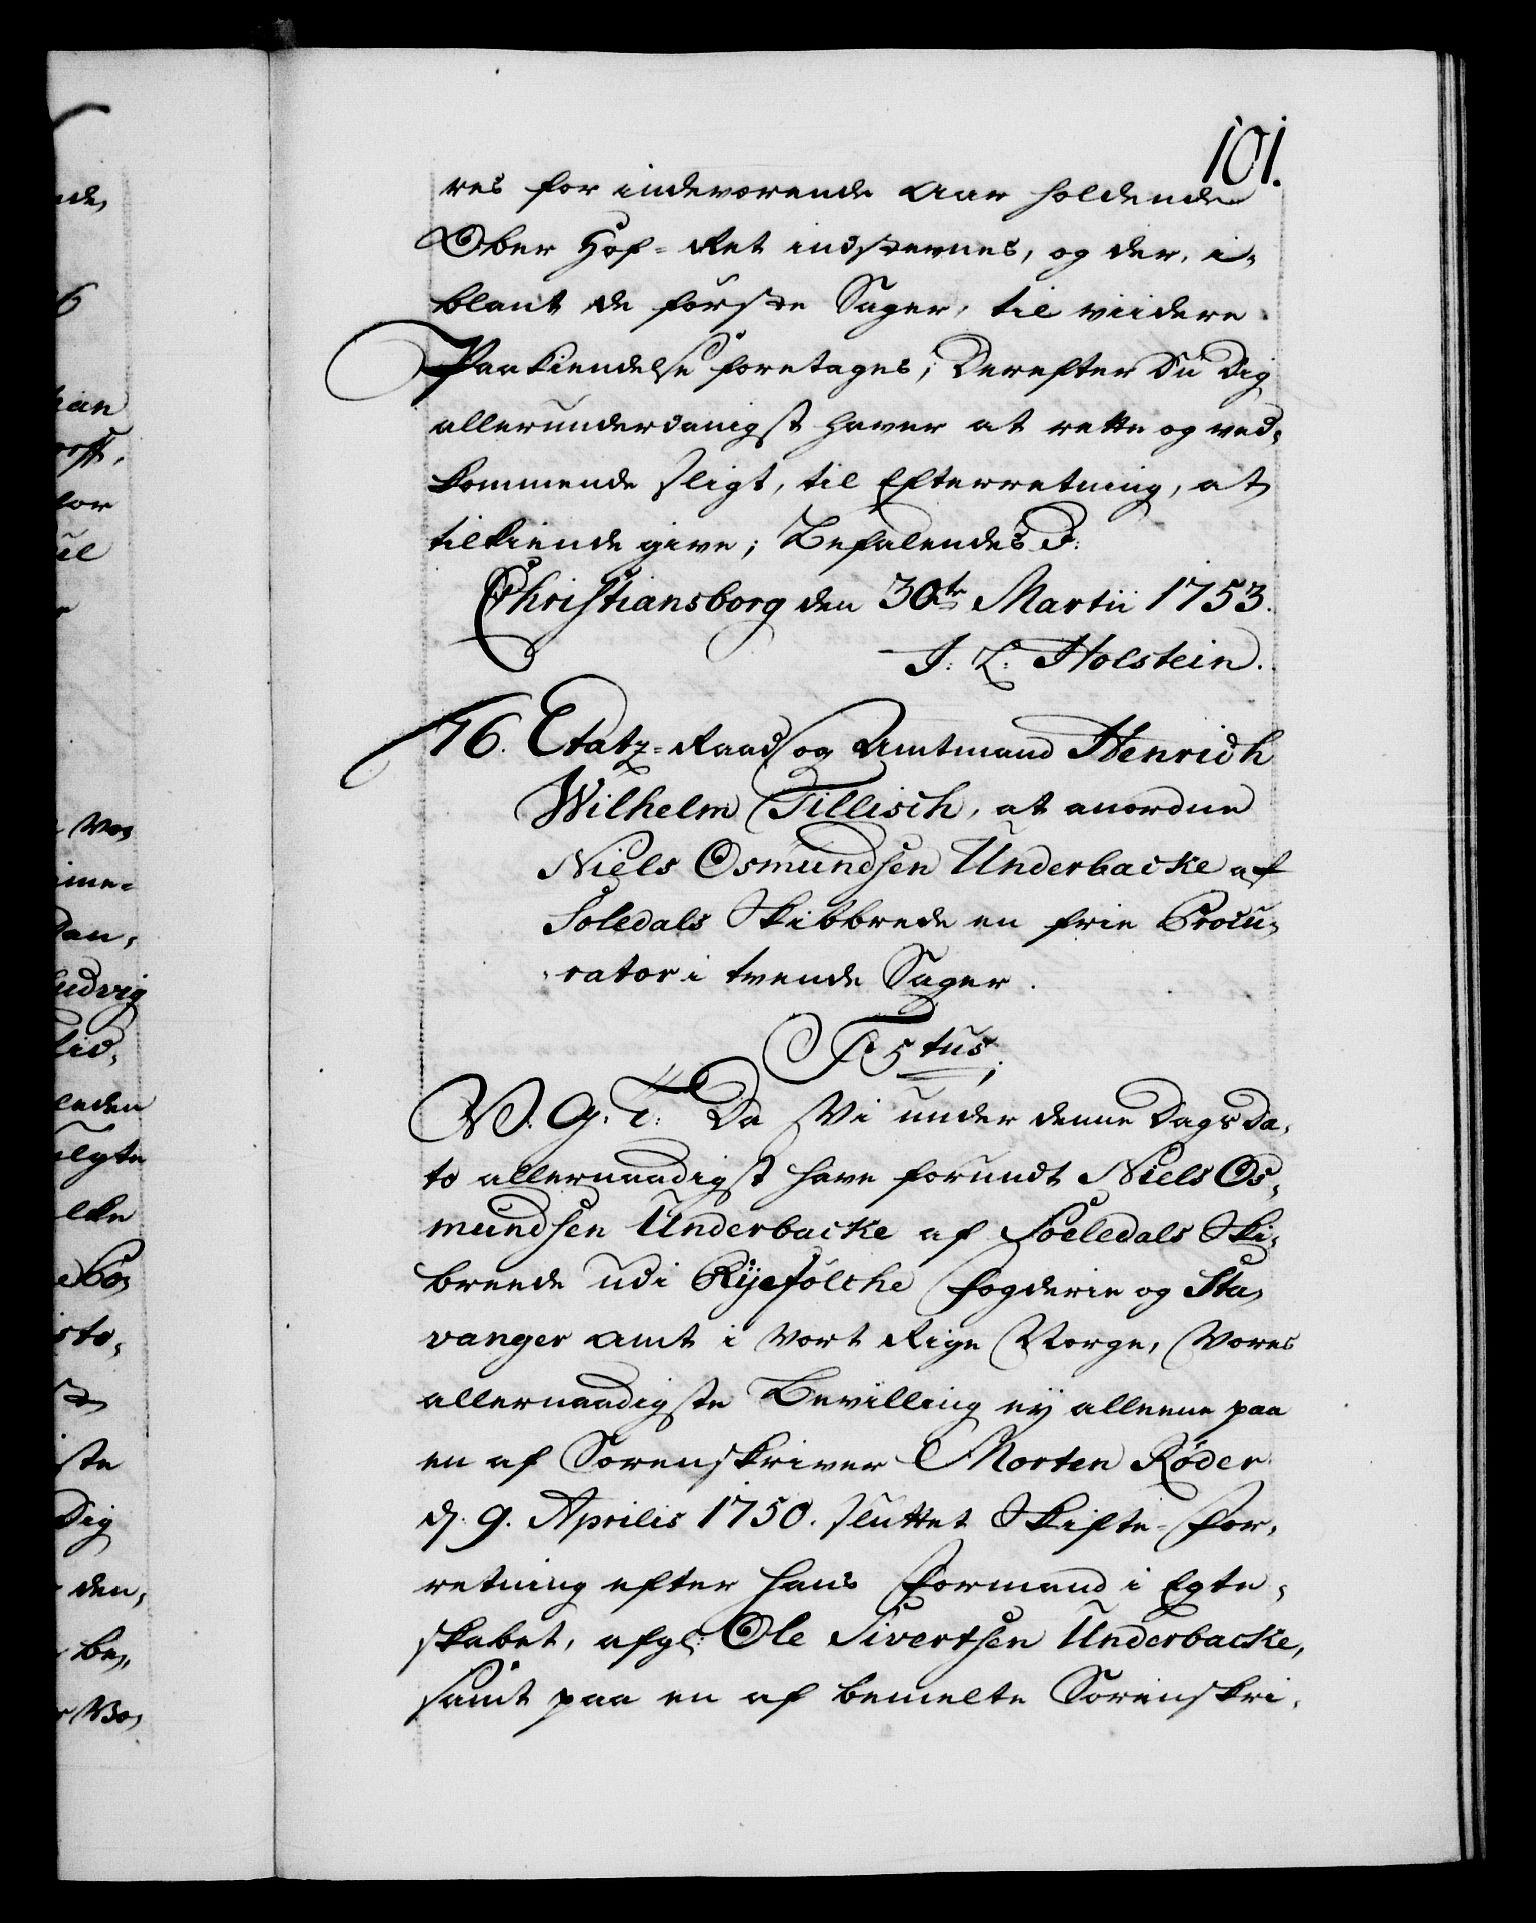 101.
res for indeværende Aar holdende
Ober Hof-Ret indstevnes, og der, i-
blant de første Sager, til viidere
Paakiendelse foretages; Derefter Du Dig
allerunderdanigst haver at rette og ved-
kommende sligt, til Efterretning, at
tilkiende give; Befalendes D:
Christiansborg den 30te Martii 1753.
J: L: Holstein.
76. Etatz-Raad og Amtmand Henrich
Wilhelm Tillisch, at anordne
Niels Osmundsen Underbacke af
Soledals Skibbrede en frie Procu-
rator i tvende Sager.
F 5tus
V. G. T: Da Vi under denne Dags Da-
to allernaadigst have forundt Niels Os-
mundsen Underbacke af Soeledals Ski-
breede udi Ryefölche Fogderie og Sta-
vanger Amt i Vort Rige Norge, Vores
allernaadigste Bevilling ey alleene paa
en af Sorenskriver Morten Røder
d: 9. Aprilis 1750. sluttet Skifte-For-
retning efter hans Formand i Egte-
skabet, afgl: Ole Sivertsen Underbacke,
samt paa en af bemelte Sorenskri-